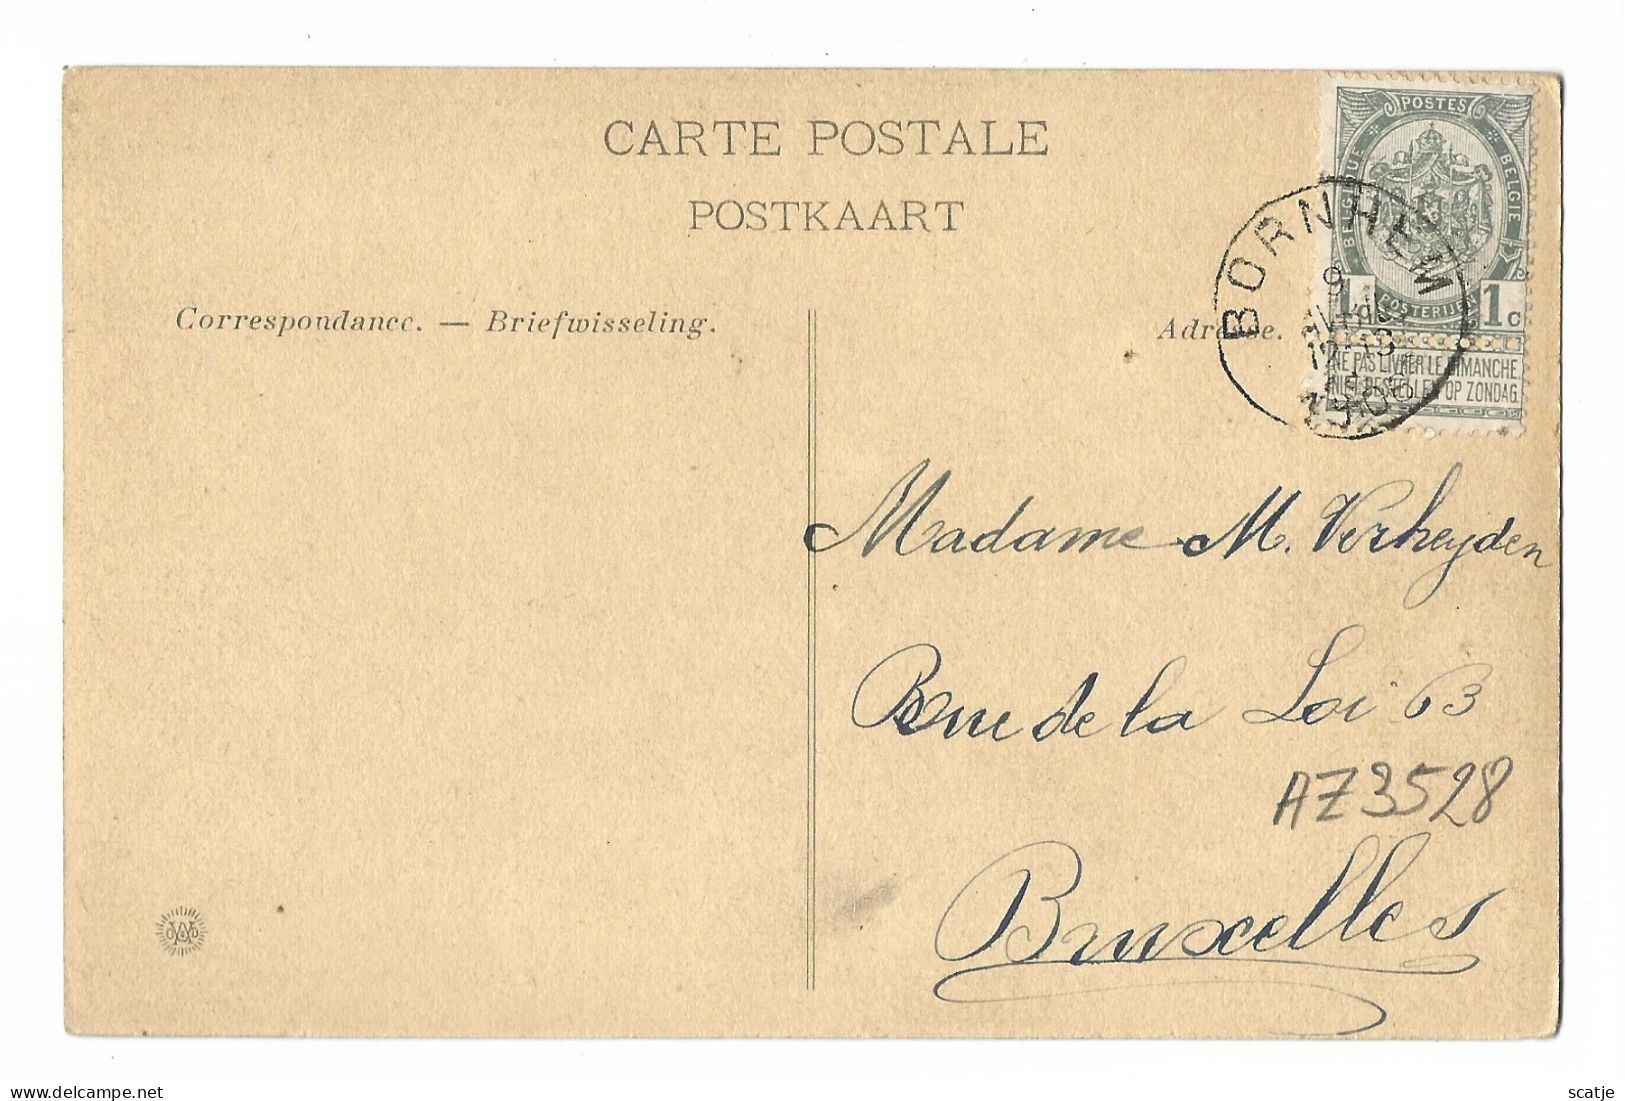 CARTE POSTALE
POSTKAART
Correspondance. — Briefwisseling.
Adresse.
POSTES
BELGIQUE BELGIË
POSTERIJEN
1 1c
NE PAS LIVRER LE DIMANCHE
NIET BESTELLEN OP ZONDAG
BORNHEM
9
12-13
1906
Madame M. Verheyden
Rue de la Loi 63
AZ3528
Bruxelles
scatje